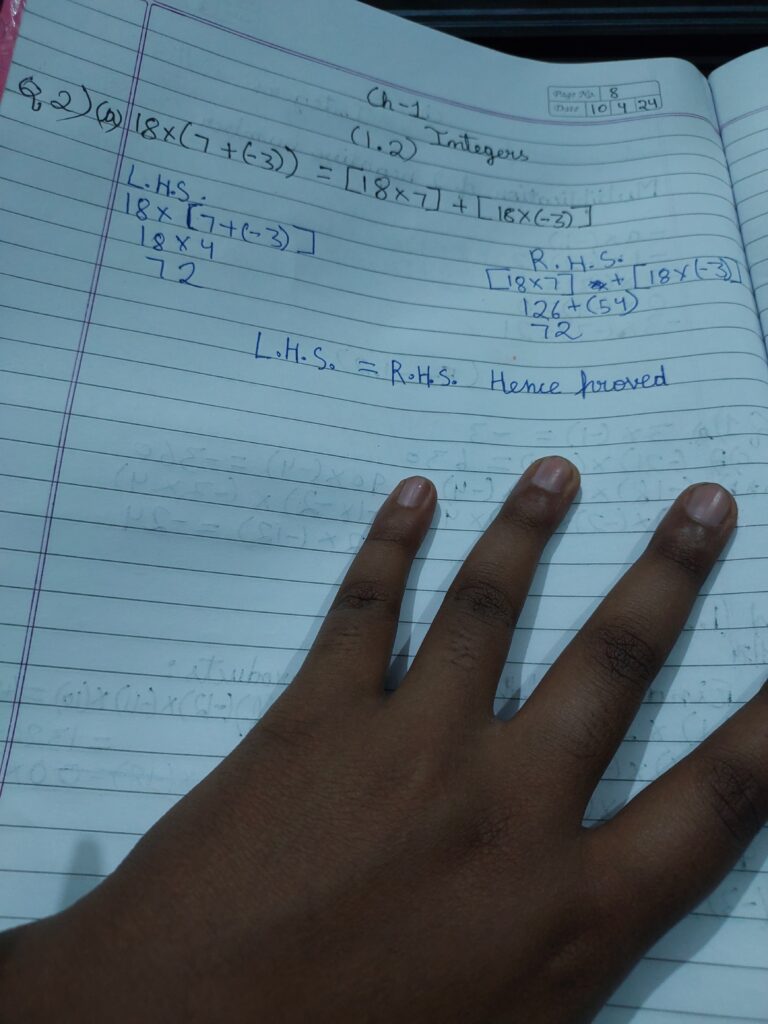 Page No. 8
Date 10 4 24
Ch-1
(1.2) Integers
Q 2) (a) 18×(7+(-3)) = [18×7] + [18×(-3)]
L.H.S.
18× [7+(-3)]
18×4
72
R.H.S.
[18×7] + [18×(-3)]
126+(54)
72
L.H.S. = R.H.S. Hence proved